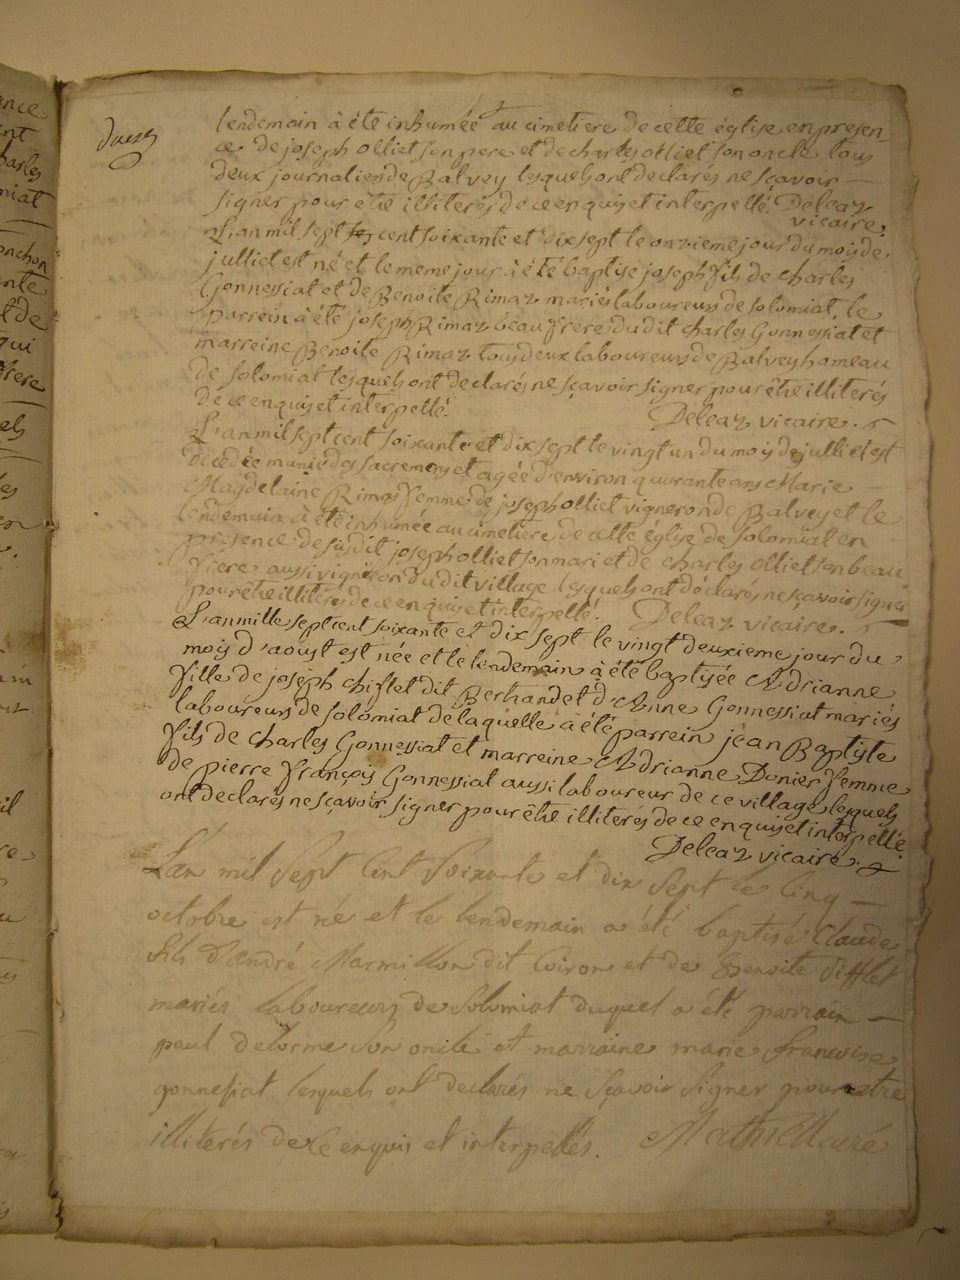 lendemain à été inhumée au cimetiere de cette église en presen
ce de joseph olliet son pere et de charles olliet son oncle tous
deux journaliers de Balvey lesquels ont declarés ne sçavoir
signer pour etre illiterés de ce enquis et interpellé. Deleaz
vicaire.
L'an mil sept cent soixante et dix sept le onzieme jour du mois de
julliet est né et le meme jour à été baptisé joseph fils de charles
Gonnessiat et de Benoite Rimaz mariés laboureurs de solomiat, le
parrein à été joseph Rimaz beau frere du dit charles Gonnessiat et
marreine Benoite Rimaz tous deux laboureurs de Balvey hameau
de solomiat lesquels ont declarés ne sçavoir signer pour être illiterés
de ce enquis et interpellé. Deleaz vicaire.
L'an mil sept cent soixante et dix sept le vingt un du mois de julliet est
decedée munie des sacremens et agée d'environ quarante ans Marie
Magdelaine Rimos femme de joseph olliet vigneron de Balvey et le
lendemain à été inhumée au cimetiere de cette église de solomiat en
presence de susdit joseph olliet son mari et de charles olliet son beau
frere aussi vigneron du dit village lesquels ont déclarés ne sçavoir signer
pour être illiterés de ce enquis et interpellé. Deleaz vicaire.
L'an mille sept cent soixante et dix sept le vingt deuxieme jour du
mois d'aoust est née et le lendemain à été baptisée Adrianne
fille de joseph chiflet dit Berthand et d'Anne Gonnessiat mariés
laboureurs de solomiat de laquelle à été parrein jean Baptiste
fils de charles Gonnessiat et marreine Adrianne Donier femme
de pierre françois Gonnessiat aussi laboureur de ce village lesquels
ont declarés ne sçavoir signer pour être illiterés de ce enquis et interpellé.
Deleaz vicaire.
L'an mil sept cent soixante et dix sept le cinq
octobre est né et le lendemain a été baptisé claude
fils d'andré Marmillon dit et de Benoite
mariés laboureurs de solomiat duquel a été parrain
paul delorme son oncle et marraine marie francoise
gonnesiat lesquels ont declarés ne sçavoir signer pour etre
illiterés de ce enquis et interpellés.